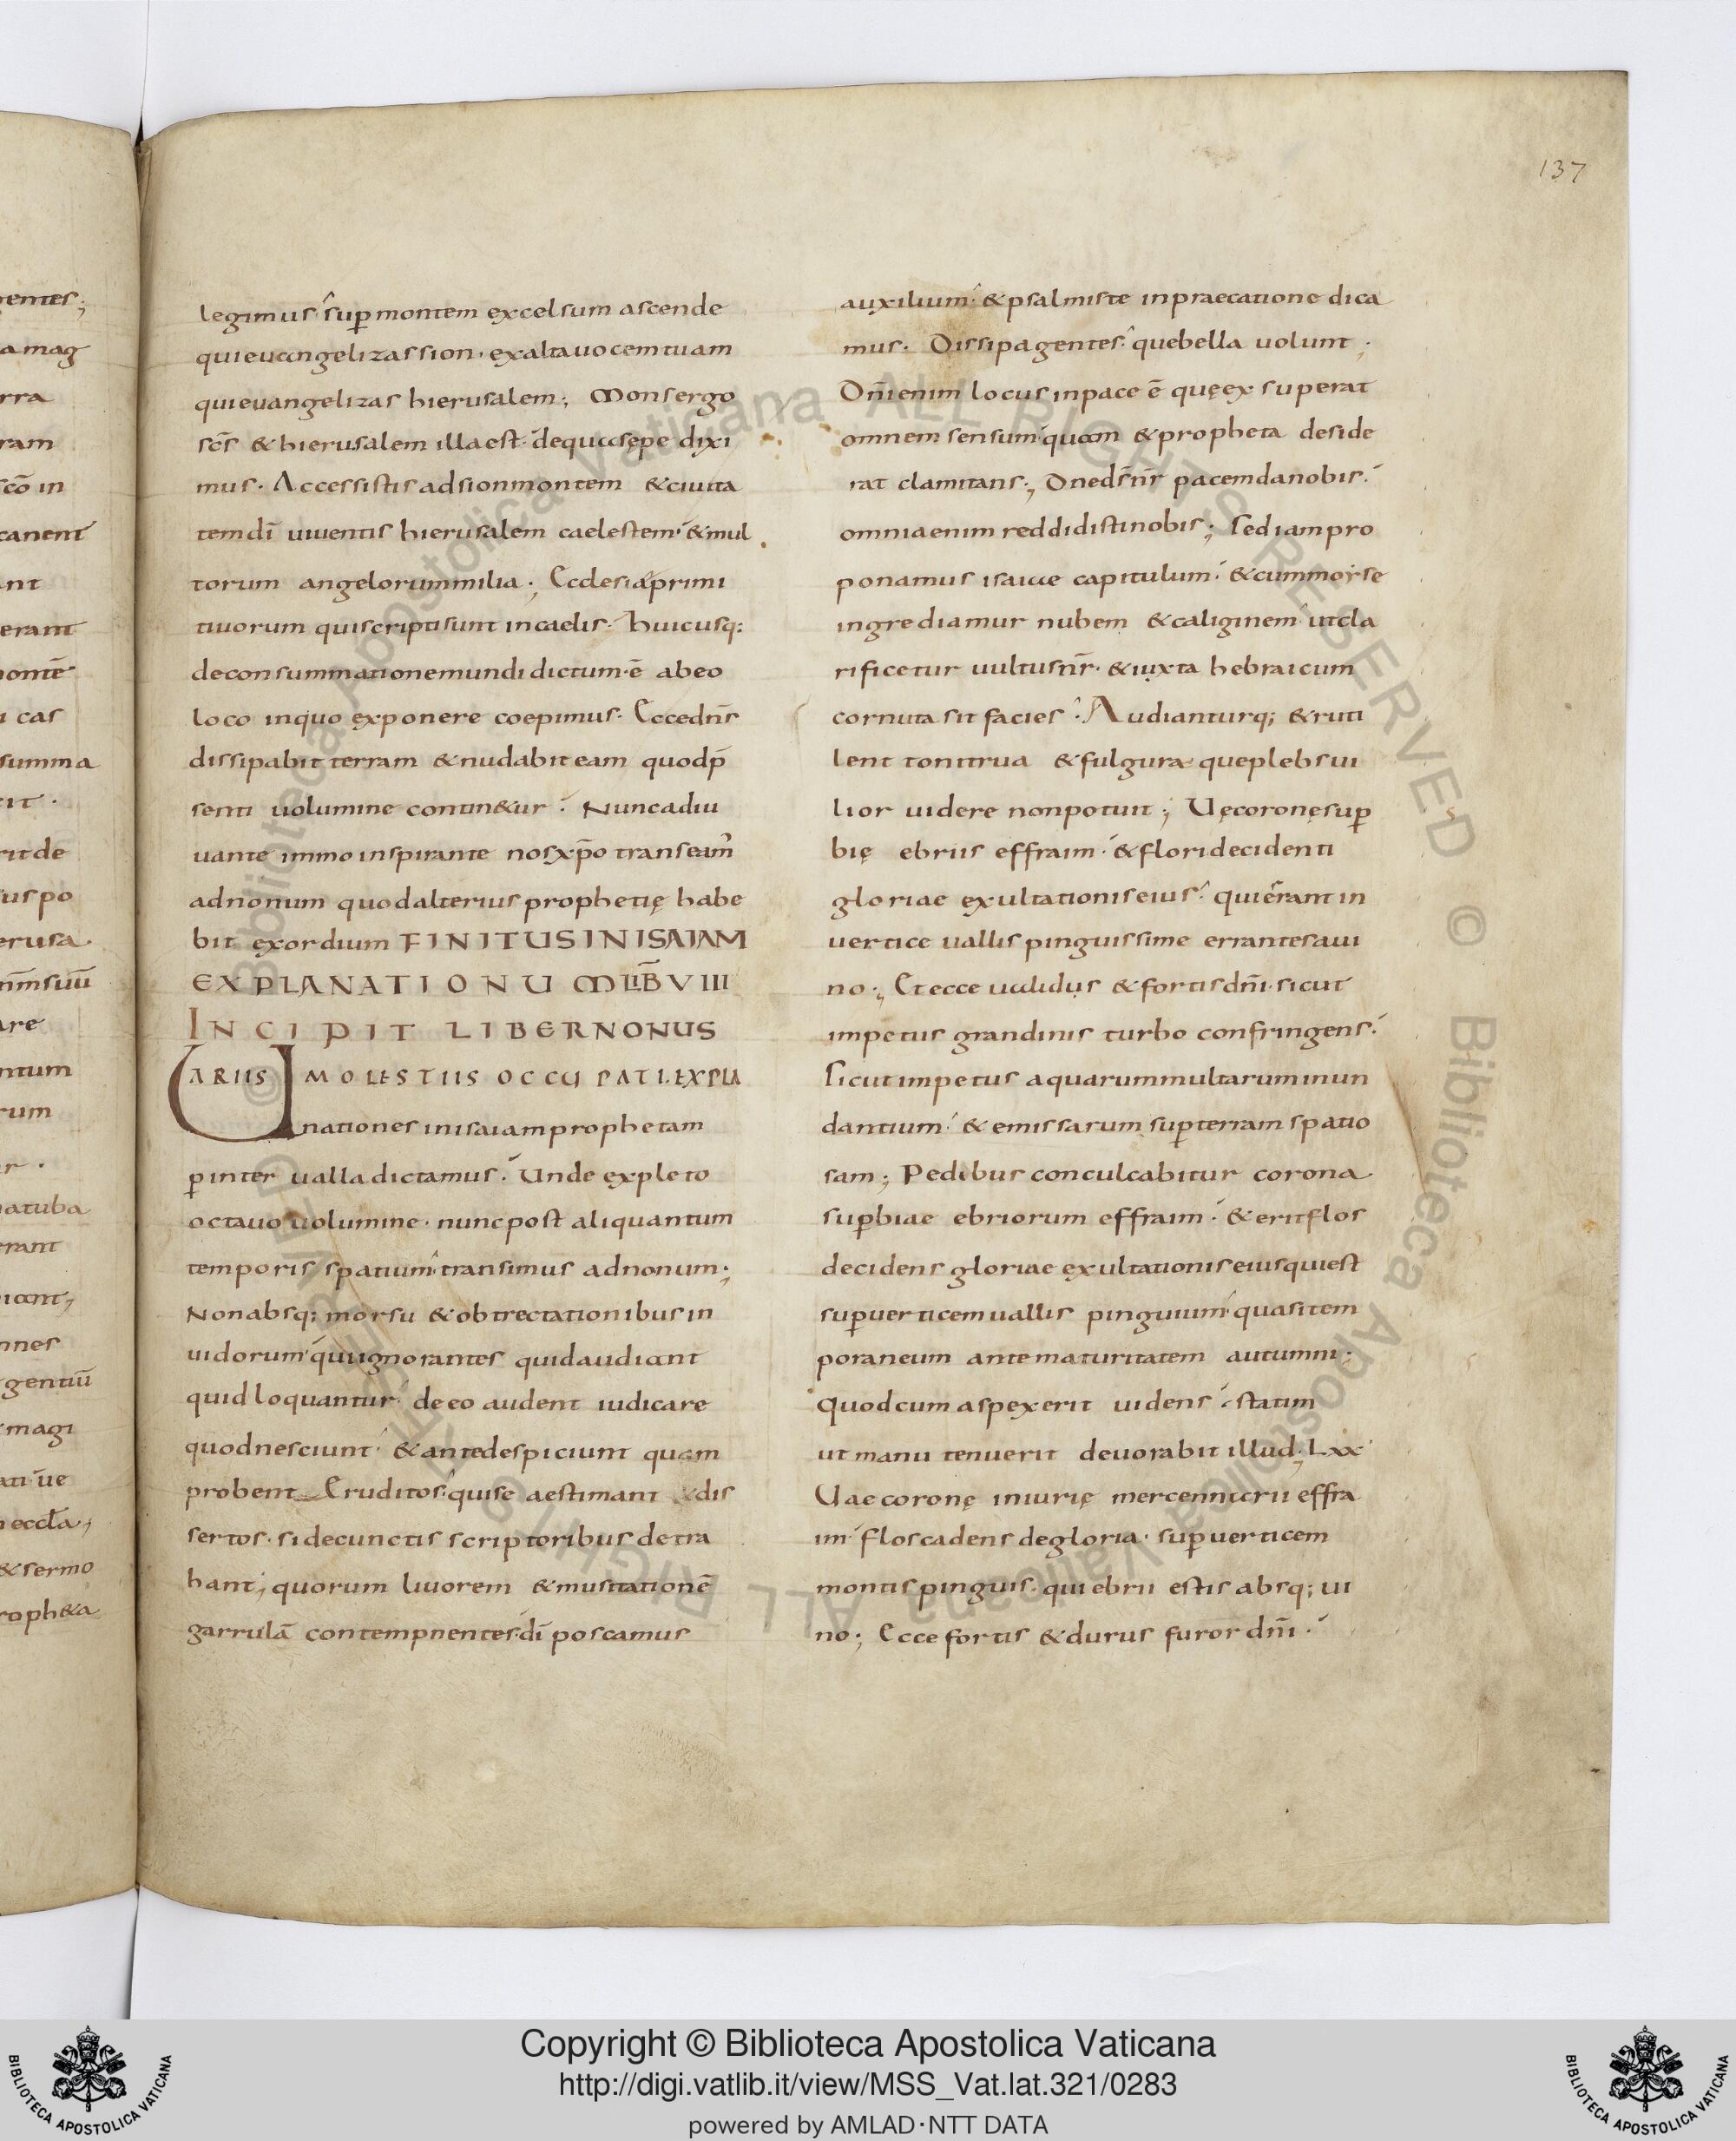 137
legimus sup montem excelsum ascende
qui euangelizas sion. exalta uocem tuam
qui euangelizas hierusalem; Mons ergo
scs & hierusalem illa est. de qua sępe dixi
mus. Accessistis ad sion montem & ciuita
tem dī uiuentis hierusalem caelestem. & mul
torum angelorum milia; Ecclesia primi
tiuorum qui scripti sunt in caelis. huicusq:
de consummatione mundi dictum ē ab eo
loco in quo exponere coepimus. Ecce dn̄s
dissipabit terram & nudabit eam quod p̄
senti uolumine contin&ur. Nunc adiu
uante immo inspirante nos xp̄o transeam
ad nonum quod alterius prophetię habe
bit exordium FINITUS IN ISAIAM
EXPLANATIONUM LIB̄ VIII
INCIPIT LIBER NONUS
UARIIS MOLESTIIS OCCUPATI. EXPLA
nationes in isaiam prophetam
p interualla dictamus. Unde expleto
octauo uolumine. nunc post aliquantum
temporis spatium transimus ad nonum;
Non absq; morsu & obtrectationibus in
uidorum qui ignorantes quid audiant
quid loquantur de eo audent iudicare
quod nesciunt & ante despiciunt quam
probent Eruditos. qui se aestimant & dis
sertos. si de cunctis scriptoribus detra
hant; quorum liuorem & musitationē
garrulā contempnentes. dī poscamus
auxilium. & psalmiste in praecatione dica
mus. Dissipa gentes. que bella uolunt;
Dn̄i enim locus in pace ē quę exsuperat
omnem sensum. quam & propheta deside
rat clamitans; Dne ds nr̄ pacem da nobis.
omnia enim reddidisti nobis; Sed iam pro
ponamus isaiae capitulum. & cum moyse
ingrediamur nubem & caliginem ut cla
rificetur uultus nr̄. & iuxta hebraicum
cornuta sit facies. Audianturq; & ruti
lent tonitrua & fulgura que plebs ui
lior uidere non potuit; Uę coronę sup
bię ebriis effraim. & flori decidenti
gloriae exultationis eius. qui erant in
uertice uallis pinguissime errantes a ui
no; Et ecce ualidus & fortis dn̄i. sicut
impetus grandinis turbo confringens.
Sicut impetus aquarum multarum inun
dantium. & emissarum sup terram spatio
sam; Pedibus conculcabitur corona
supbiae ebriorum effraim. & erit flos
decidens gloriae exultationis eius qui est
sup uerticem uallis pinguium. quasi tem
poraneum ante maturitatem autumni;
Quod cum aspexerit uidens. statim
ut manu tenuerit deuorabit illud; Lxx
Uae coronę iniurię mercennarii effra
im. flos cadens de gloria. sup uerticem
montis pinguis. qui ebrii estis absq; ui
no; Ecce fortis & durus furor dn̄i.
Copyright © Biblioteca Apostolica Vaticana
http://digi.vatlib.it/view/MSS_Vat.lat.321/0283
powered by AMLAD·NTT DATA